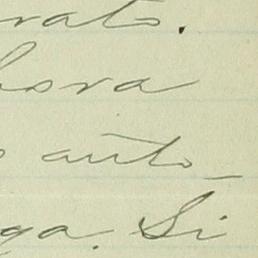 rato.
hora
o auto-
ga. Si